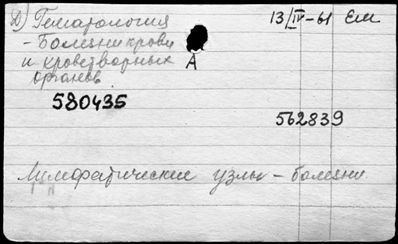 Д) Гематология 13/IV-61 Ем
- Болезни крови
и кроветворных А
органов
580435
562839
Лимфатические узлы - болезни